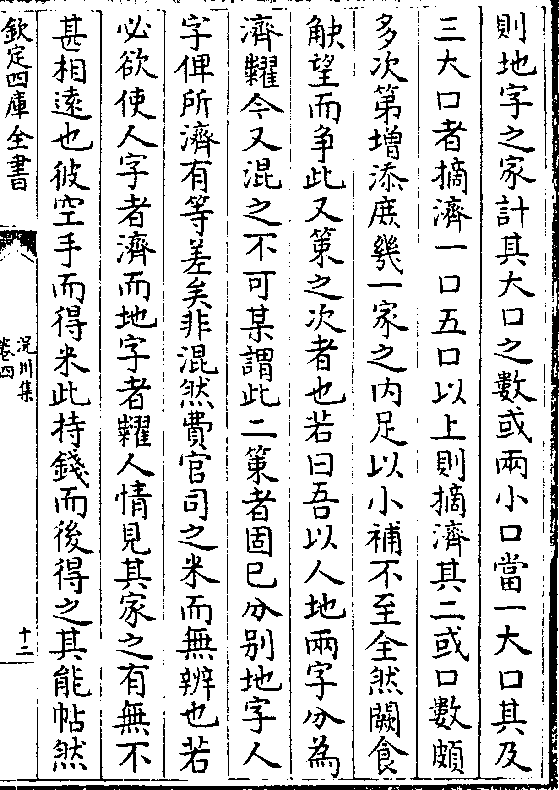 則地字之家計其大口之數或兩小口當一大口其及
三大口者摘濟一口五口以上則摘濟其二或口數頗
多次第增添庶幾一家之内足以小補不至全然闕食
觖望而争此又策之次者也若曰吾以人地兩字分為
濟糶今又混之不可某謂此二策者固已分别地字人
字俾所濟有等差矣非混然費官司之米而無辨也若
必欲使人字者濟而地字者糶人情見其家之有無不
甚相遠也彼空手而得米此持錢而後得之其能帖然
欽定四庫全書
卷四
十二